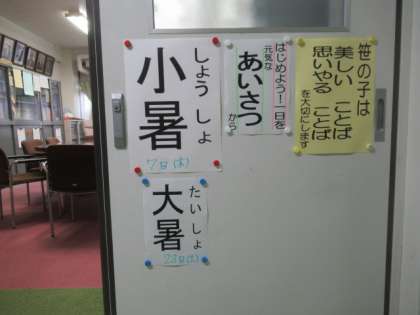 笹の子は
美しい ことば
思いやる ことば
を大切にします
はじめよう!一日を
元気な
あいさつ
から
小暑
しょう しょ
7日(木)
大暑
たい しょ
23日(土)